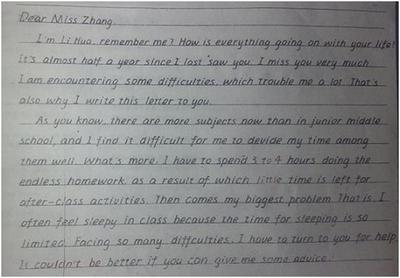 Dear Miss Zhang,
I'm Li Hua, remember me? How is everything going on with your life?
it's almost half a year since I last saw you. I miss you very much
I am encountering some difficulties, which trouble me a lot. That's
also why I write this letter to you.
As you know, there are more subjects now than in junior middle
school, and I find it difficult for me to devide my time among
them well. What's more, I have to spend 3 to 4 hours doing the
endless homework, as a result of which little time is left for
after-class activities. Then comes my biggest problem. That is, I
often feel sleepy in class because the time for sleeping is so
limited. Facing so many diffculties, I have to turn to you for help.
It couldn't be better if you can give me some advice.